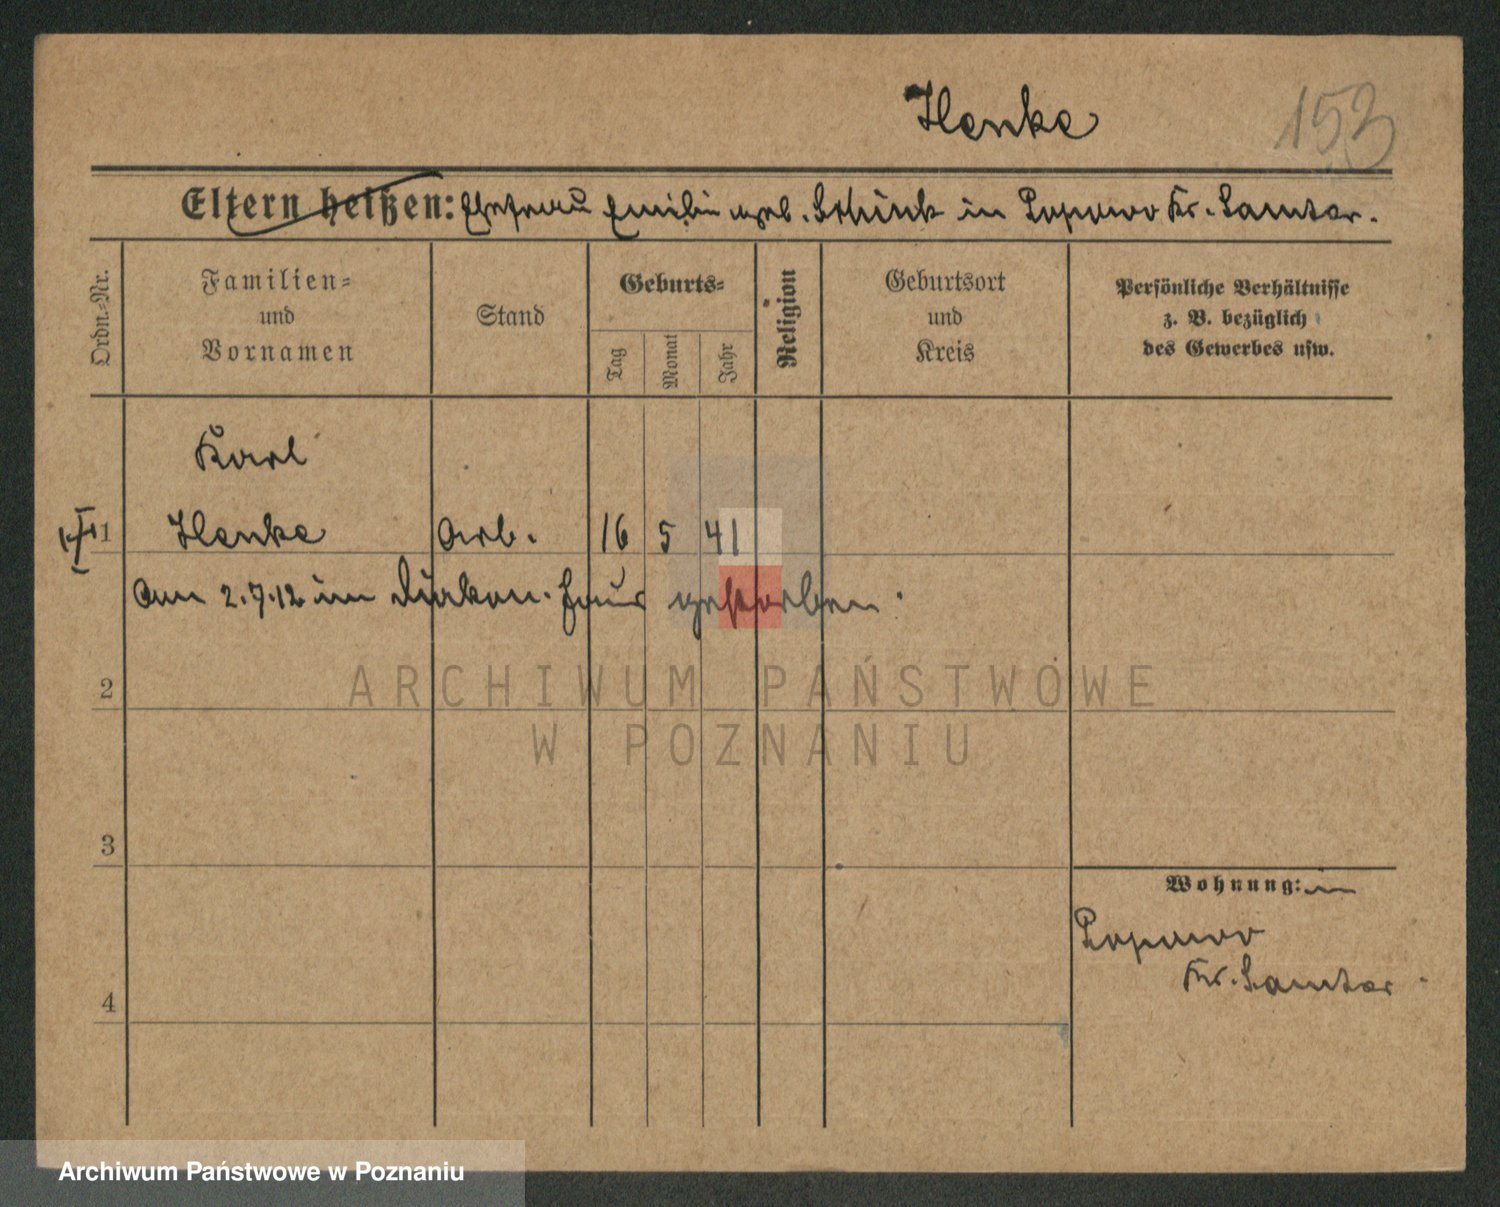 Henke
153
Eltern heißen: Ehefrau Emilie geb. Schink in Popowo Kr. Samter.
Ordn.-Nr.
Familien-
und
Vornamen
Stand
Geburts-
Tag
Monat
Jahr
Religion
Geburtsort
und
Kreis
Persönliche Verhältnisse
z. B. bezüglich
des Gewerbes usw.
Karl
1 Henke Arb. 16 5 41
Am 2.7.12 im Diakon. Haus gestorben.
ARCHIWUM PAŃSTWOWE
W POZNANIU
2
3
Wohnung: in
Popowo
Kr. Samter
4
Archiwum Państwowe w Poznaniu